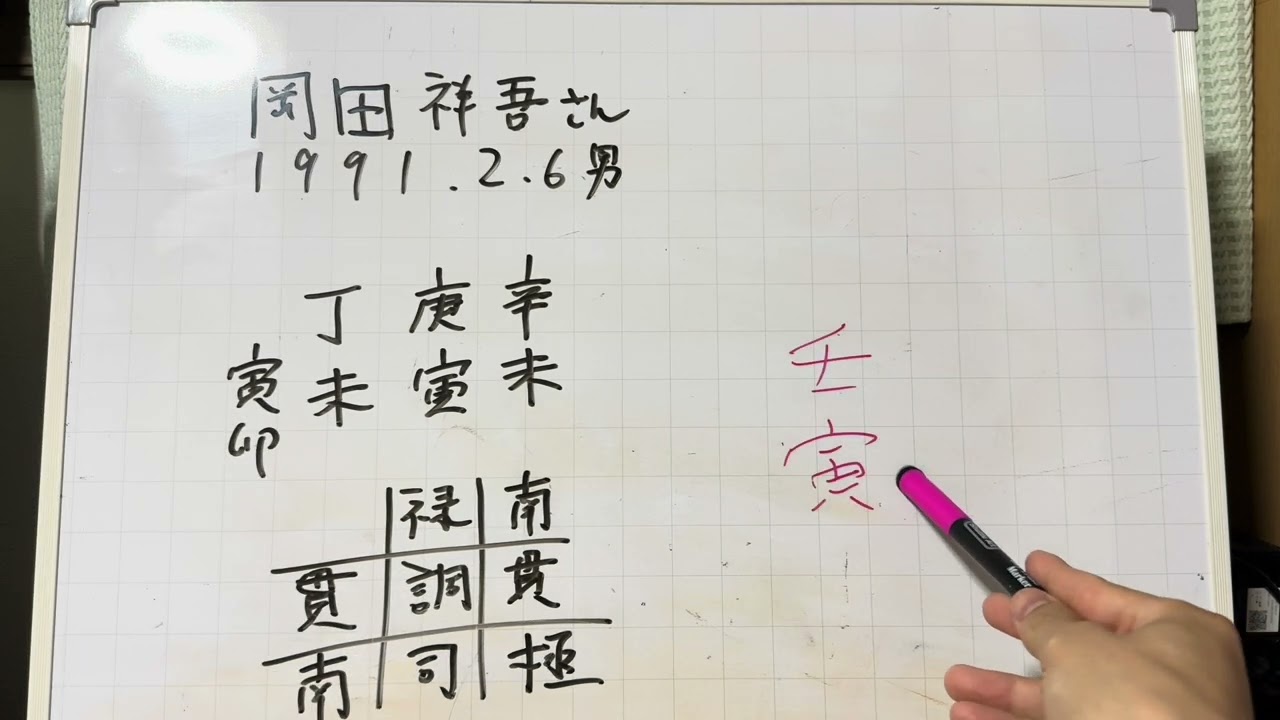 岡田祥吾さん
1991.2.6男
丁庚辛
寅未寅未
卯
禄南
貫調貫
南司極
壬
寅
Marker